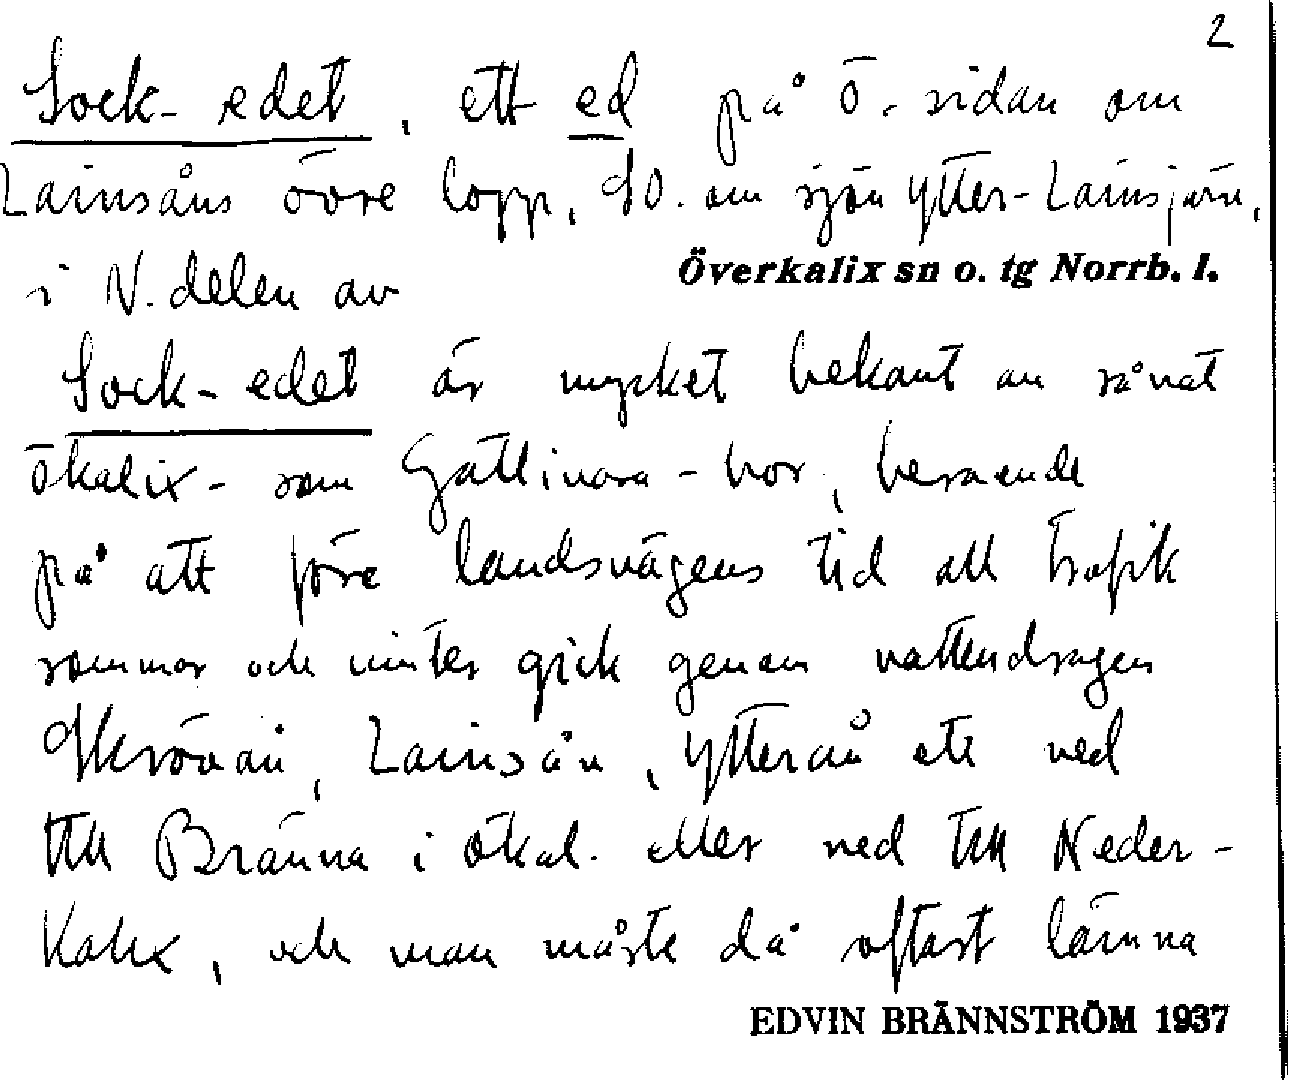 2
Sock-edet, ett ed på ö. sidan om
Lainsåns övre lopp, SO. om sjön Ytter-Lainsjärv,
i N. delen av Överkalix sn o. tg Norrb. l.
Sock-edet är mycket bekant av såväl
ökalix- som Gällivara-bor, beroende
på att före landsvägens tid all trafik
sommar och vinter gick genom vattendragen
Skrövån, Lainsån, Ytterån etc ned
till Bränna i ökal. eller ned till Neder-
kalix, och man måste då oftast lämna
EDVIN BRÄNNSTRÖM 1937